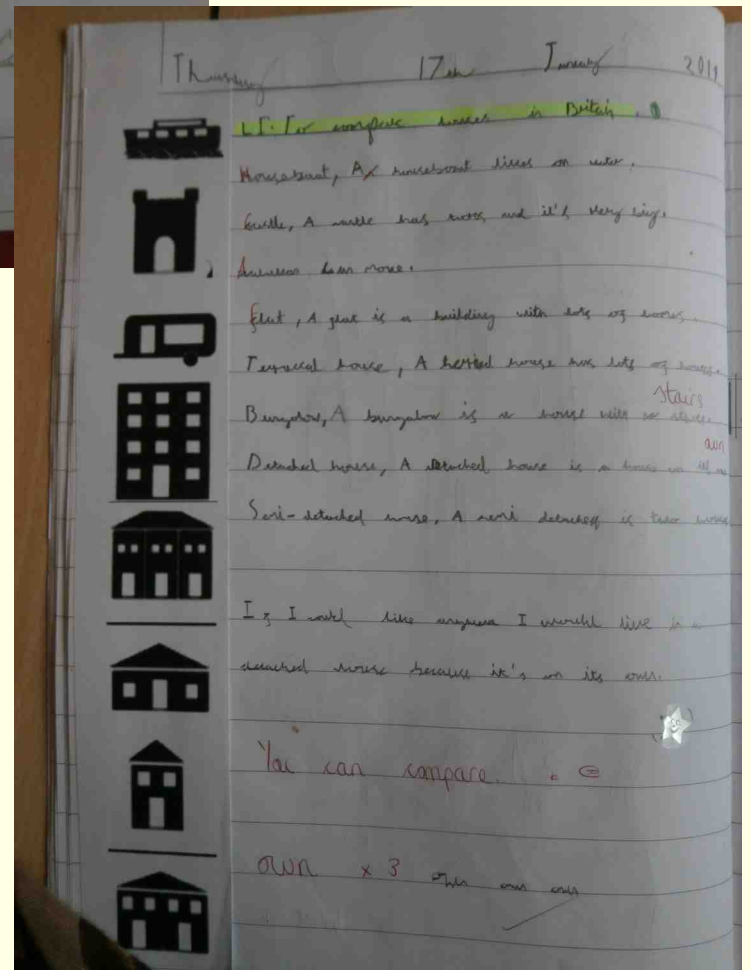 Thursday 17th January 2019
L.I. To compare houses in Britain.
Houseboat, A houseboat lives on water.
Castle, A castle has and it's very big.
move.
Flat, A flat is a building with lots of homes.
Terraced house, A house has lots of houses.
Stairs
Bungalow, A bungalow is a house with no
own
Detached house, A detached house is a house on
Semi-detached house, A semi detached is two houses
If I could live I would live in a
detached house because it's on its own.
You can compare.
own x 3 own own own